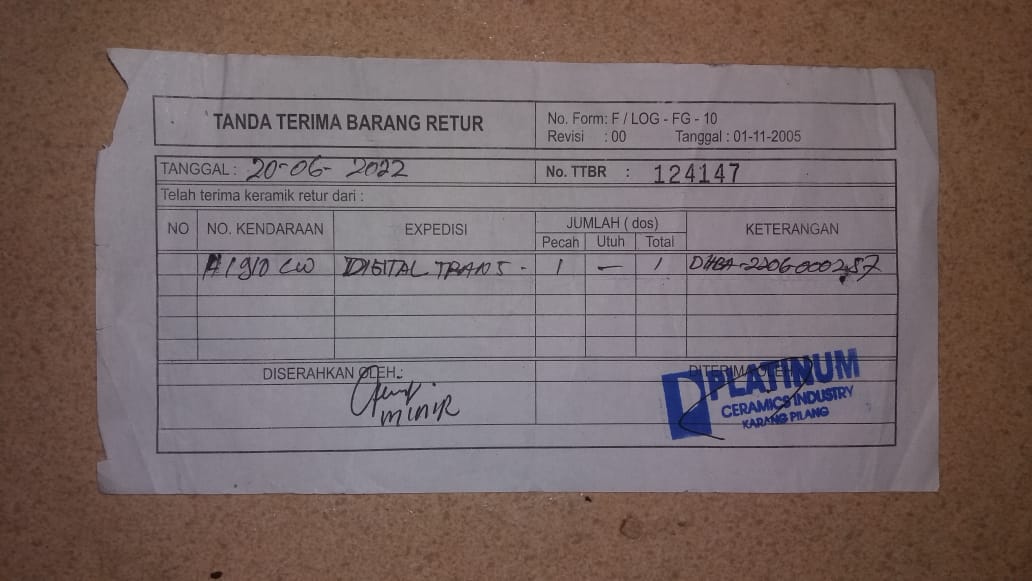 TANDA TERIMA BARANG RETUR
No. Form: F / LOG - FG - 10
Revisi : 00 Tanggal : 01-11-2005
TANGGAL : 20-06-2022 No. TTBR : 124147
Telah terima keramik retur dari :
NO NO. KENDARAAN EXPEDISI JUMLAH ( dos) KETERANGAN
Pecah Utuh Total
1910 CW DIGITAL TRANS - 1 — 1
DISERAHKAN OLEH : DITERIMA OLEH
PLATINUM
CERAMICS INDUSTRY
KARANG PILANG